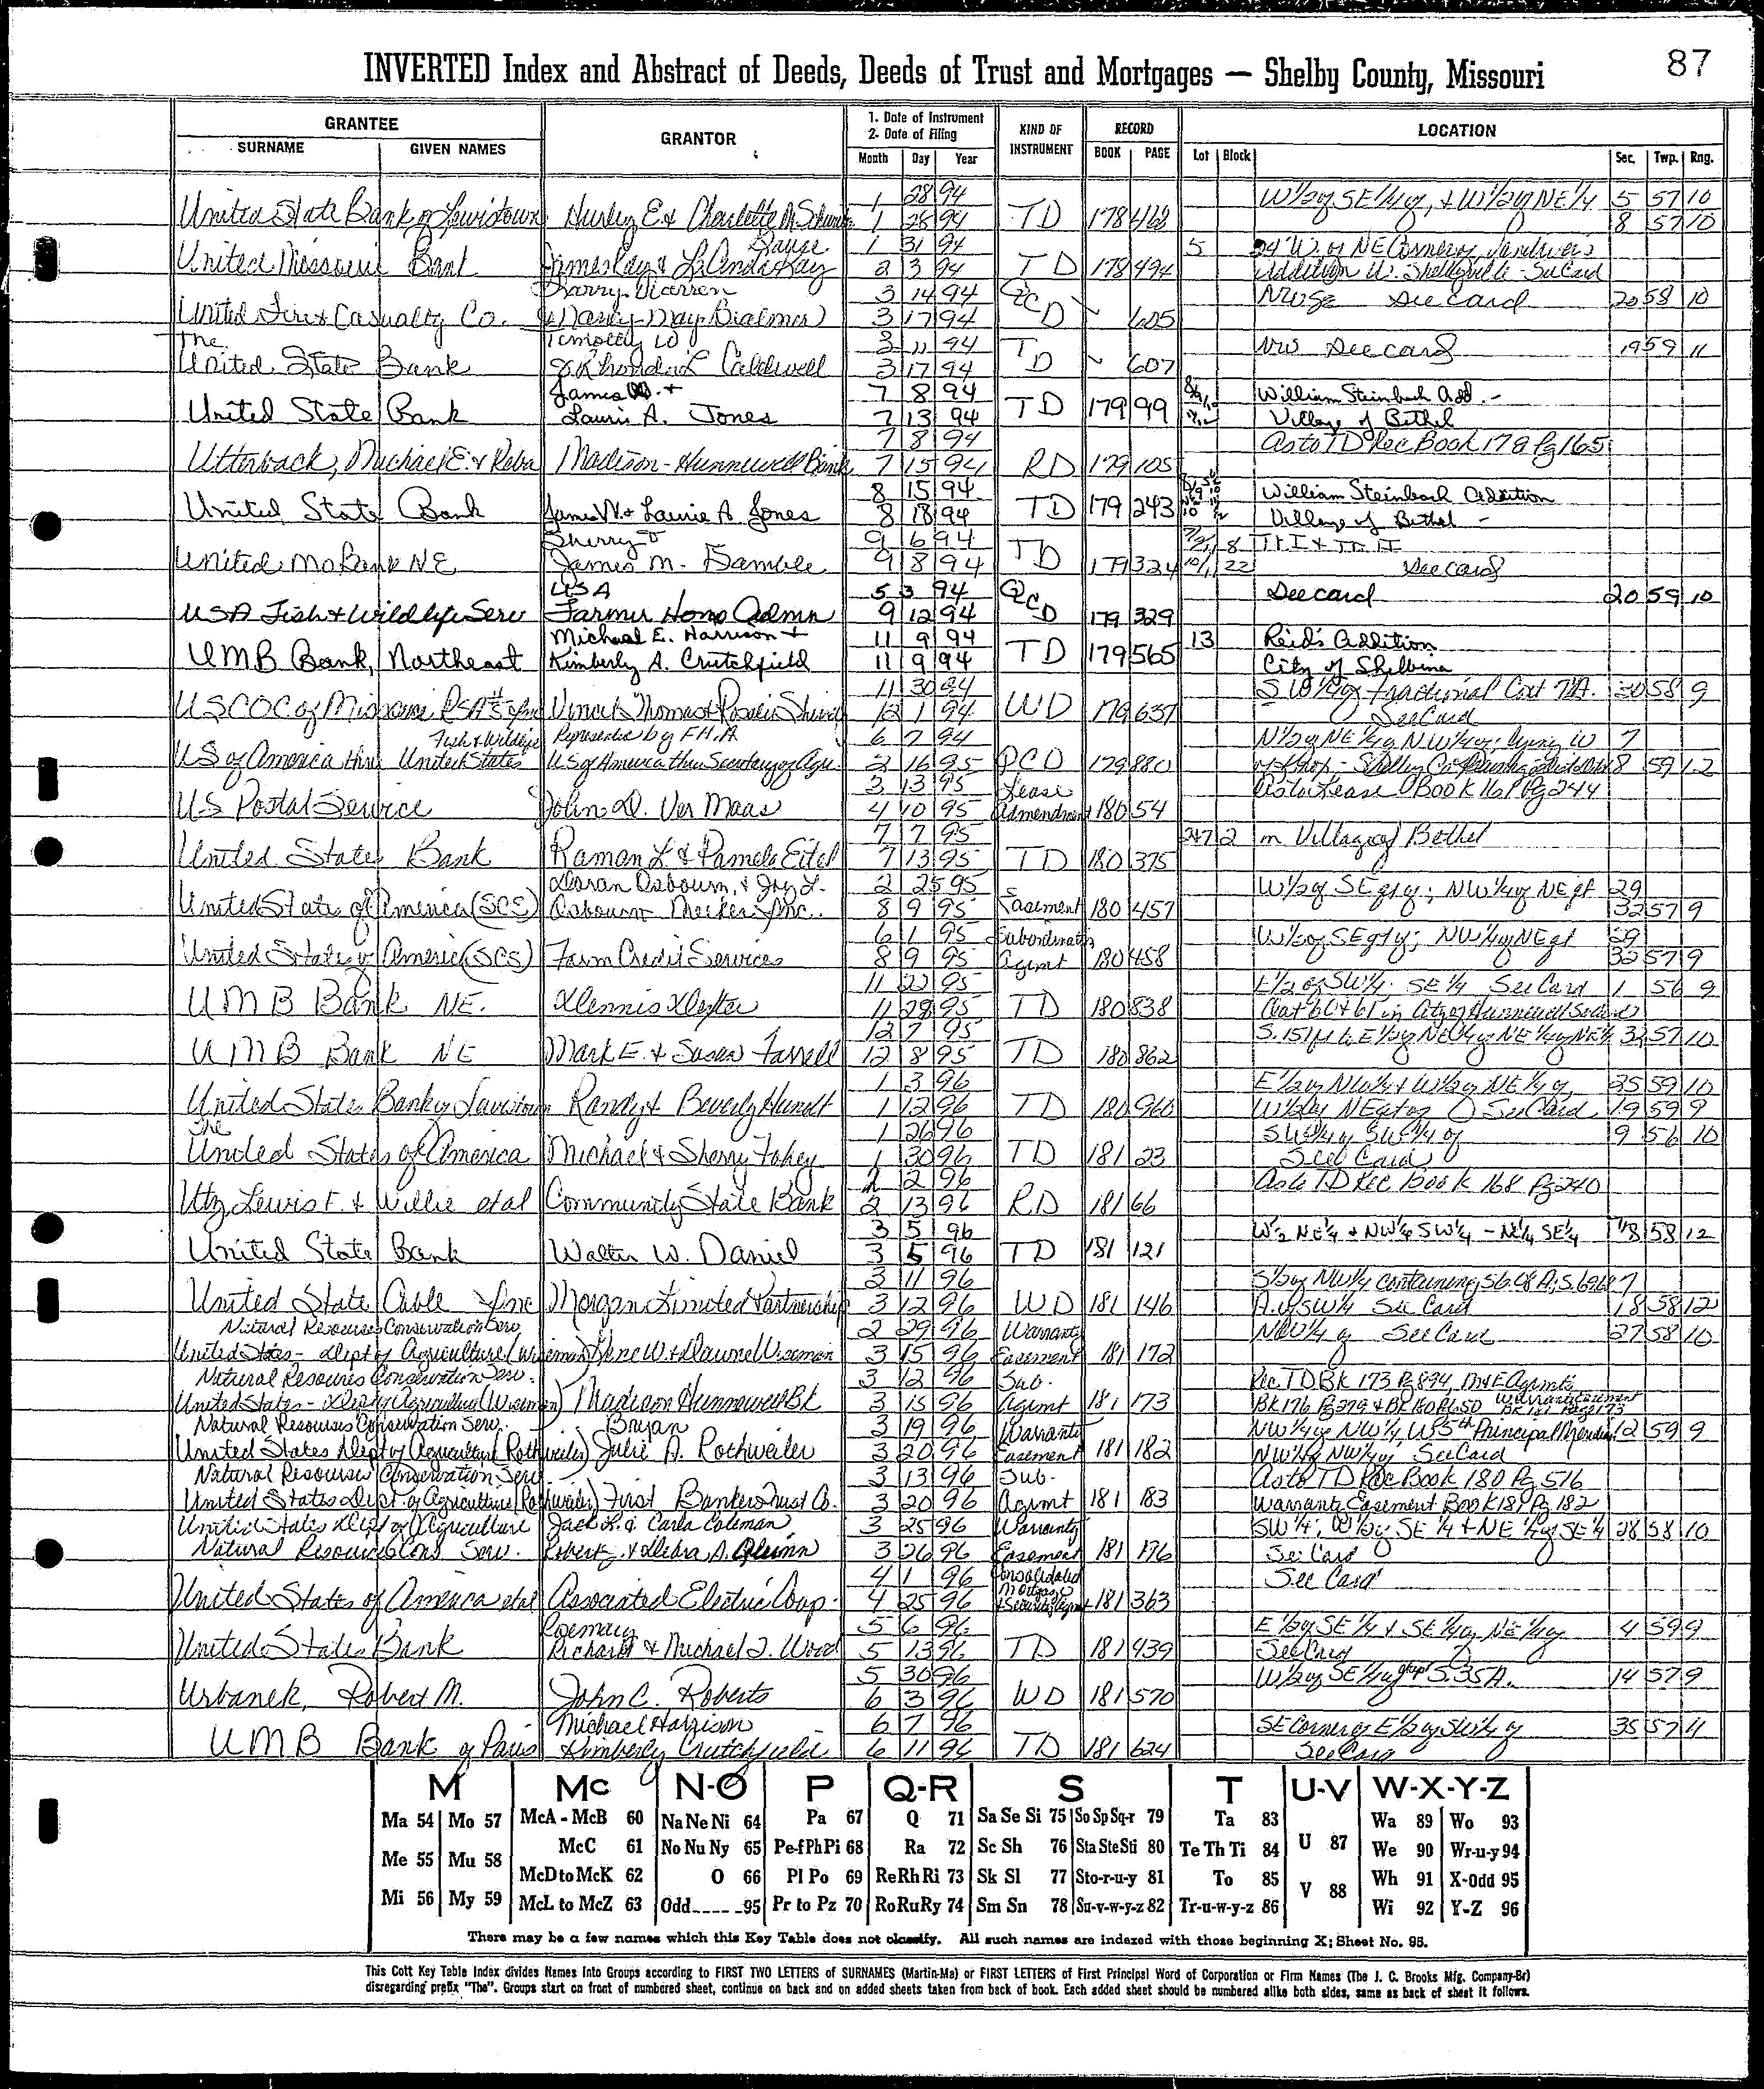 87
INVERTED Index and Abstract of Deeds, Deeds of Trust and Mortgages — Shelby County, Missouri
GRANTEE
SURNAME GIVEN NAMES
GRANTOR
1. Date of Instrument
2. Date of Filing
Month Day Year
KIND OF INSTRUMENT
RECORD
BOOK PAGE
LOCATION
Lot Block Sec. Twp. Rng.
1 28 94 W 1/2 of SE 1/4 of, & W 1/2 of NE 1/4 5 57 10
United State Bank of Lewistown Hurley E. & Charlotte M. 1 28 94 TD 178 468 8 57 10
1 31 94 5 24' W. of NE Corner of
United Missouri Bank James Ray & LaAnda Kay 2 3 94 TD 178 494 Addition W. Shelbyville - See Card
Harry Warren 3 14 94 QCD NWSE See Card 20 58 10
United Fire & Casualty Co. 3 17 94 605
The Timothy W 3 11 94 TD NW See card 19 59 11
United State Bank & Rhonda L Caldwell 3 17 94 607
James W. + 7 8 94 William Steinbach Add. -
United State Bank Laurie A. Jones 7 13 94 TD 179 99 Village of Bethel
7 8 94 As to TD Rec Book 178 Pg 165
Utterback, Michael E. & Reba Madison-Hunnewell Bank 7 15 94 RD 179 105
8 15 94 William Steinbach Addition
United State Bank James W. & Laurie A. Jones 8 18 94 TD 179 243 Village of Bethel -
Sherry J 9 6 94 8 Tr I & Tr II
United Mo Bank NE James M. Gamble 9 8 94 TD 179 324 22 See card
USA 5 3 94 QCD See card 20 59 10
USA Fish & Wildlife Serv Farmer Home Admn 9 12 94 179 329
Michael E. Harrison + 11 9 94 13 Reid's Addition
UMB Bank, Northeast Kimberly A. Crutchfield 11 9 94 TD 179 565 City of Shelbina
11 30 94 SW 1/4 of fractional 30 58 9
USCOC of Missouri RSA #5 Inc Vincent Thomas & Rosalie 12 1 94 WD 179 637 See Card
Fish & Wildlife Represented by FHA 6 7 94 N 1/2 of NE 1/4 of NW 1/4 of; lying W 7
US of America thru United States US of America thru Secretary of Agri. 2 16 95 QCD 179 880 8 59 12
3 13 95 Lease As to Lease Book 161 Pg 244
US Postal Service John D. Ver Maas 4 10 95 Admendment 180 54
7 7 95 2 in Village of Bethel
United State Bank Raman L. & Pamela Eitel 7 13 95 TD 180 375
Doran Osbourn, & Joy L. 2 25 95 W 1/2 of SE qr of; NW 1/4 of NE qr 29
United State of America (SCS) Osbourn Meeker Inc. 8 9 95 Easement 180 457 32 57 9
6 1 95 Subordination W 1/2 of SE qr of; NW 1/4 of NE qr 29
United States of America (SCS) Farm Credit Services 8 9 95 Agrmt 180 458 32 57 9
11 22 95 E 1/2 of SW 1/4. SE 1/4 See Card 1 56 9
UMB Bank NE. Dennis Dexter 11 28 95 TD 180 838 in City of Hunnewell See Card
12 7 95 S. 151 ft E 1/2 of NE 1/4 of NE 1/4 of NE 1/4 32 57 10
UMB Bank NE Mark E. & Susan Farrell 12 8 95 TD 180 862
1 3 96 E 1/2 of NW 1/4 & W 1/2 of NE 1/4 of, 35 59 10
United State Bank of Lewistown Randy & Beverly Hundt 1 12 96 TD 180 960 See Card 19 59 9
The 1 26 96 SW 1/4 of SW 1/4 of 9 56 10
United States of America Michael & Sherry Fohey 1 30 96 TD 181 23 See Card
2 2 96 As to TD Rec Book 168 Pg 240
Utz, Lewis F. & Willie et al Community State Bank 2 13 96 RD 181 66
3 5 96 W 1/2 NE 1/4 & NW 1/4 SW 1/4 - N 1/4 SE 1/4 18 58 12
United State Bank Walter W. Daniel 3 5 96 TD 181 121
3 11 96 S 1/2 of NW 1/4 containing 56.08 A; 7
United State Cable Inc Morgan Limited Partnership 3 12 96 WD 181 146 See Card 18 58 12
Natural Resources Conservation Serv 2 29 96 Warranty NW 1/4 of See Card 27 58 10
United States - Dept of Agriculture (Wiseman) Gene W. & Dawne Wiseman 3 15 96 Easement 181 172
Natural Resources Conservation Serv. 3 12 96 Sub. Rec TD BK 173 Pg 894, M&E Agrmts
United States - Dept of Agriculture (Wiseman) Madison Hunnewell Bk 3 15 96 Agrmt 181 173 BK 176 Pg 279 & BK 180 Pg 50 Warranty Easement
Natural Resources Conservation Serv. Bryan 3 19 96 Warranty NW 1/4 of NW 1/4, W 5th Principal Meridian 12 59 9
United States Dept of Agriculture (Rothweiler) Julie A. Rothweiler 3 20 96 Easement 181 182 NW 1/4 of NW 1/4 of See Card
Natural Resources Conservation Serv 3 13 96 Sub. As to TD Rec Book 180 Pg 516
United States Dept. of Agriculture (Rothweiler) First Bankers Trust Co. 3 20 96 Agrmt 181 183 Warranty Easement Book 181 Pg 182
United States Dept of Agriculture Jack L. & Carla Coleman, 3 25 96 Warranty SW 1/4; W 1/2 of SE 1/4 & NE 1/4 of SE 1/4 28 58 10
Natural Resources Cons Serv. Robert & Debra A. Quinn 3 26 96 Easement 181 196 See Card
4 1 96 Consolidated Mortgage See Card
United States of America et al Associated Electric Coop. 4 25 96 & Security Agrmt 181 363
Rosemary 5 6 96 E 1/2 of SE 1/4 & SE 1/4 of NE 1/4 of 4 59 9
United States Bank Richard & Michael J. Wood 5 13 96 TD 181 439 See Card
5 30 96 W 1/2 of SE 1/4 of 5.35 A. 14 57 9
Urbanek, Robert M. John C. Roberts 6 3 96 WD 181 570
Michael Harrison 6 7 96 SE Corner of E 1/2 of SW 1/4 of 35 57 11
UMB Bank of Paris Kimberly Crutchfield 6 11 96 TD 181 624 See Card
M Mc N-O P Q-R S T U-V W-X-Y-Z
Ma 54 Mo 57 McA - McB 60 Na Ne Ni 64 Pa 67 Q 71 Sa Se Si 75 So Sp Sq-r 79 Ta 83 Wa 89 Wo 93
Me 55 Mu 58 McC 61 No Nu Ny 65 Pe-f Ph Pi 68 Ra 72 Sc Sh 76 Sta Ste Sti 80 Te Th Ti 84 U 87 We 90 Wr-u-y 94
McD to McK 62 O 66 Pl Po 69 Re Rh Ri 73 Sk Sl 77 Sto-r-u-y 81 To 85 V 88 Wh 91 X-Odd 95
Mi 56 My 59 McL to McZ 63 Odd 95 Pr to Pz 70 Ro Ru Ry 74 Sm Sn 78 Su-v-w-y-z 82 Tr-u-w-y-z 86 Wi 92 Y-Z 96
There may be a few names which this Key Table does not classify. All such names are indexed with those beginning X; Sheet No. 95.
This Cott Key Table Index divides Names into Groups according to FIRST TWO LETTERS of SURNAMES (Martin-Ma) or FIRST LETTERS of First Principal Word of Corporation or Firm Names (The J. C. Brooks Mfg. Company-Br)
disregarding prefix "The". Groups start on front of numbered sheet, continue on back and on added sheets taken from back of book. Each added sheet should be numbered alike both sides, same as back of sheet it follows.